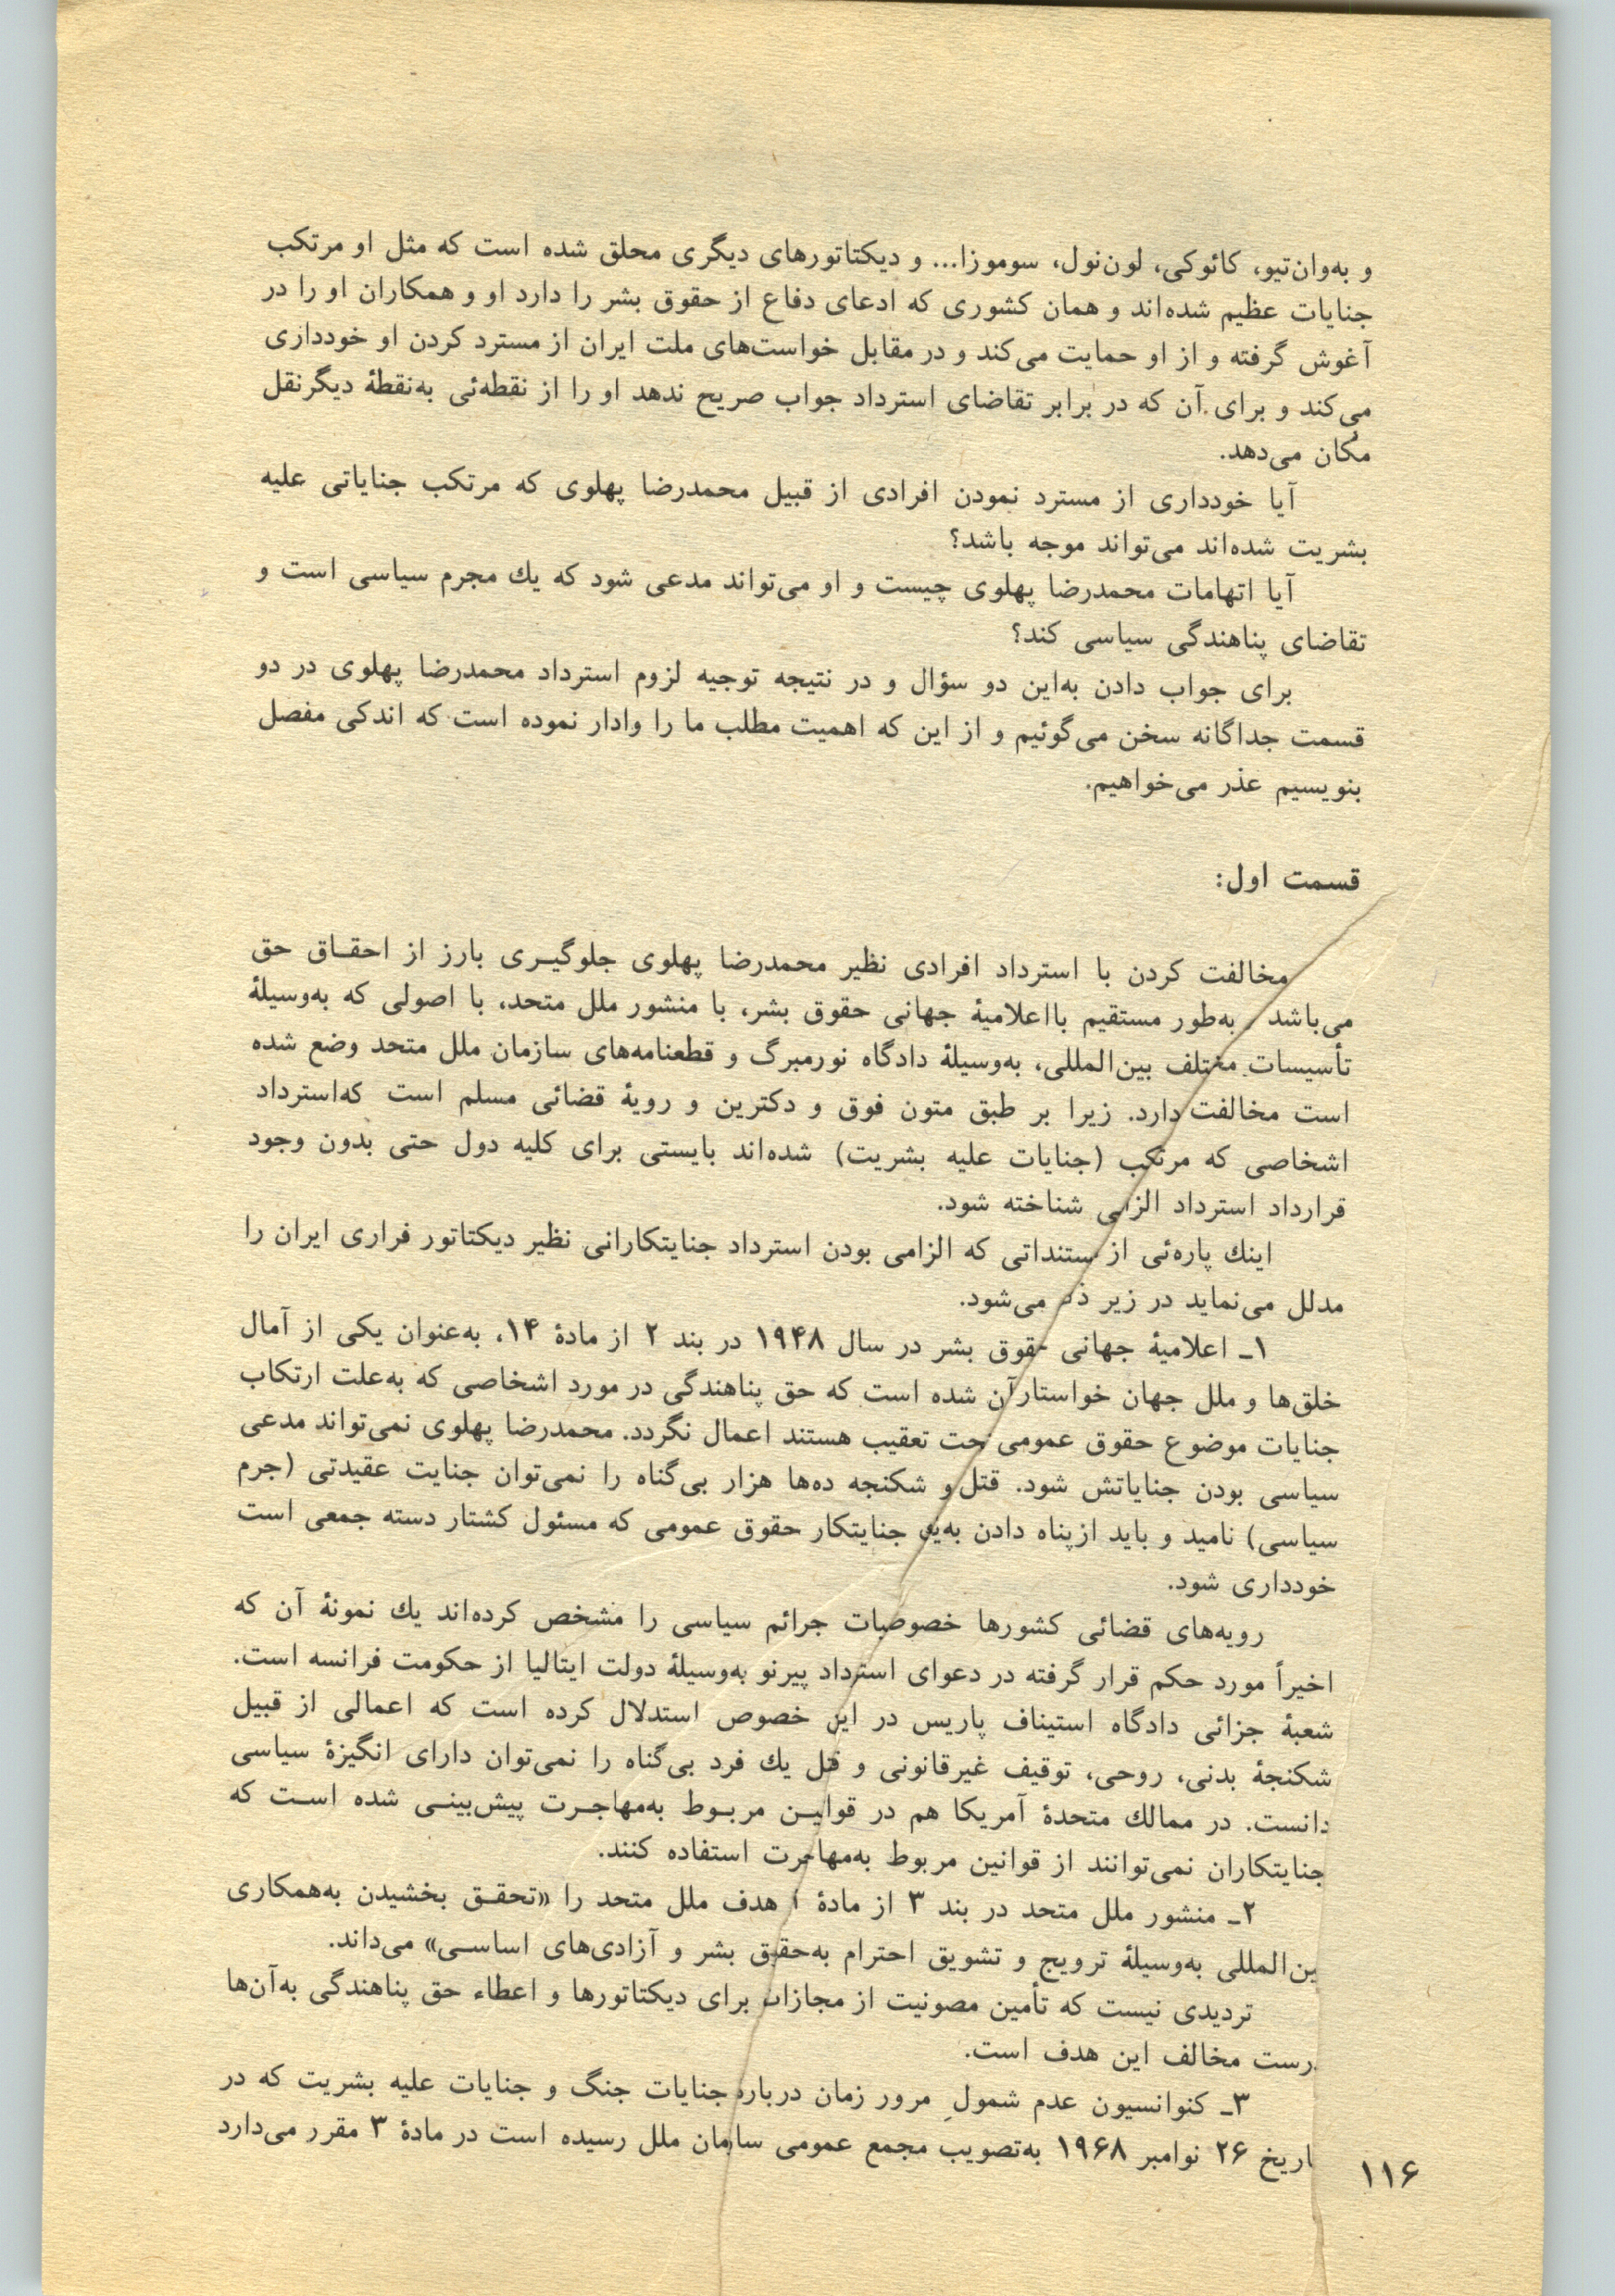 و به‌وان‌تیو، کائوکی، لون‌نول، سوموزا... و دیکتاتورهای دیگری محلق شده است که مثل او مرتکب
جنایات عظیم شده‌اند و همان کشوری که ادعای دفاع از حقوق بشر را دارد او و همکاران او را در
آغوش گرفته و از او حمایت می‌کند و در مقابل خواست‌های ملت ایران از مسترد کردن او خودداری
می‌کند و برای آن که در برابر تقاضای استرداد جواب صریح ندهد او را از نقطه‌ئی به‌نقطهٔ دیگرنقل
مکان می‌دهد.
آیا خودداری از مسترد نمودن افرادی از قبیل محمدرضا پهلوی که مرتکب جنایاتی علیه
بشریت شده‌اند می‌تواند موجه باشد؟
آیا اتهامات محمدرضا پهلوی چیست و او می‌تواند مدعی شود که یك مجرم سیاسی است و
تقاضای پناهندگی سیاسی کند؟
برای جواب دادن به‌این دو سؤال و در نتیجه توجیه لزوم استرداد محمدرضا پهلوی در دو
قسمت جداگانه سخن می‌گوئیم و از این که اهمیت مطلب ما را وادار نموده است که اندکی مفصل
بنویسیم عذر می‌خواهیم.
قسمت اول:
مخالفت کردن با استرداد افرادی نظیر محمدرضا پهلوی جلوگیـری بارز از احقـاق حق
می‌باشد و به‌طور مستقیم بااعلامیهٔ جهانی حقوق بشر، با منشور ملل متحد، با اصولی که به‌وسیلهٔ
تأسیسات مختلف بین‌المللی، به‌وسیلهٔ دادگاه نورمبرگ و قطعنامه‌های سازمان ملل متحد وضع شده
است مخالفت دارد. زیرا بر طبق متون فوق و دکترین و رویهٔ قضائی مسلم است که‌استرداد
اشخاصی که مرتکب (جنایات علیه بشریت) شده‌اند بایستی برای کلیه دول حتی بدون وجود
قرارداد استرداد الزامی شناخته شود.
اینك پاره‌ئی از مستنداتی که الزامی بودن استرداد جنایتکارانی نظیر دیکتاتور فراری ایران را
مدلل می‌نماید در زیر ذکر می‌شود.
۱ـ اعلامیهٔ جهانی حقوق بشر در سال ۱۹۴۸ در بند ۲ از مادهٔ ۱۴، به‌عنوان یکی از آمال
خلق‌ها و ملل جهان خواستارآن شده است که حق پناهندگی در مورد اشخاصی که به‌علت ارتکاب
جنایات موضوع حقوق عمومی تحت تعقیب هستند اعمال نگردد. محمدرضا پهلوی نمی‌تواند مدعی
سیاسی بودن جنایاتش شود. قتل و شکنجه ده‌ها هزار بی‌گناه را نمی‌توان جنایت عقیدتی (جرم
سیاسی) نامید و باید ازپناه دادن به‌یك جنایتکار حقوق عمومی که مسئول کشتار دسته جمعی است
خودداری شود.
رویه‌های قضائی کشورها خصوصیات جرائم سیاسی را مشخص کرده‌اند یك نمونهٔ آن که
اخیراً مورد حکم قرار گرفته در دعوای استرداد پیرنو به‌وسیلهٔ دولت ایتالیا از حکومت فرانسه است.
شعبهٔ جزائی دادگاه استیناف پاریس در این خصوص استدلال کرده است که اعمالی از قبیل
شکنجهٔ بدنی، روحی، توقیف غیرقانونی و قتل یك فرد بی‌گناه را نمی‌توان دارای انگیزهٔ سیاسی
دانست. در ممالك متحدهٔ آمریکا هم در قوانیـن مربـوط به‌مهاجـرت پیش‌بینـی شده اسـت که
جنایتکاران نمی‌توانند از قوانین مربوط به‌مهاجرت استفاده کنند.
۲ـ منشور ملل متحد در بند ۳ از مادهٔ ۱ هدف ملل متحد را «تحقـق بخشیدن به‌همکاری
بین‌المللی به‌وسیلهٔ ترویج و تشویق احترام به‌حقوق بشر و آزادی‌های اساسـی» می‌داند.
تردیدی نیست که تأمین مصونیت از مجازات برای دیکتاتورها و اعطاء حق پناهندگی به‌آن‌ها
درست مخالف این هدف است.
۳ـ کنوانسیون عدم شمولِ مرور زمان درباره جنایات جنگ و جنایات علیه بشریت که در
تاریخ ۲۶ نوامبر ۱۹۶۸ به‌تصویب مجمع عمومی سازمان ملل رسیده است در مادهٔ ۳ مقرر می‌دارد
۱۱۶